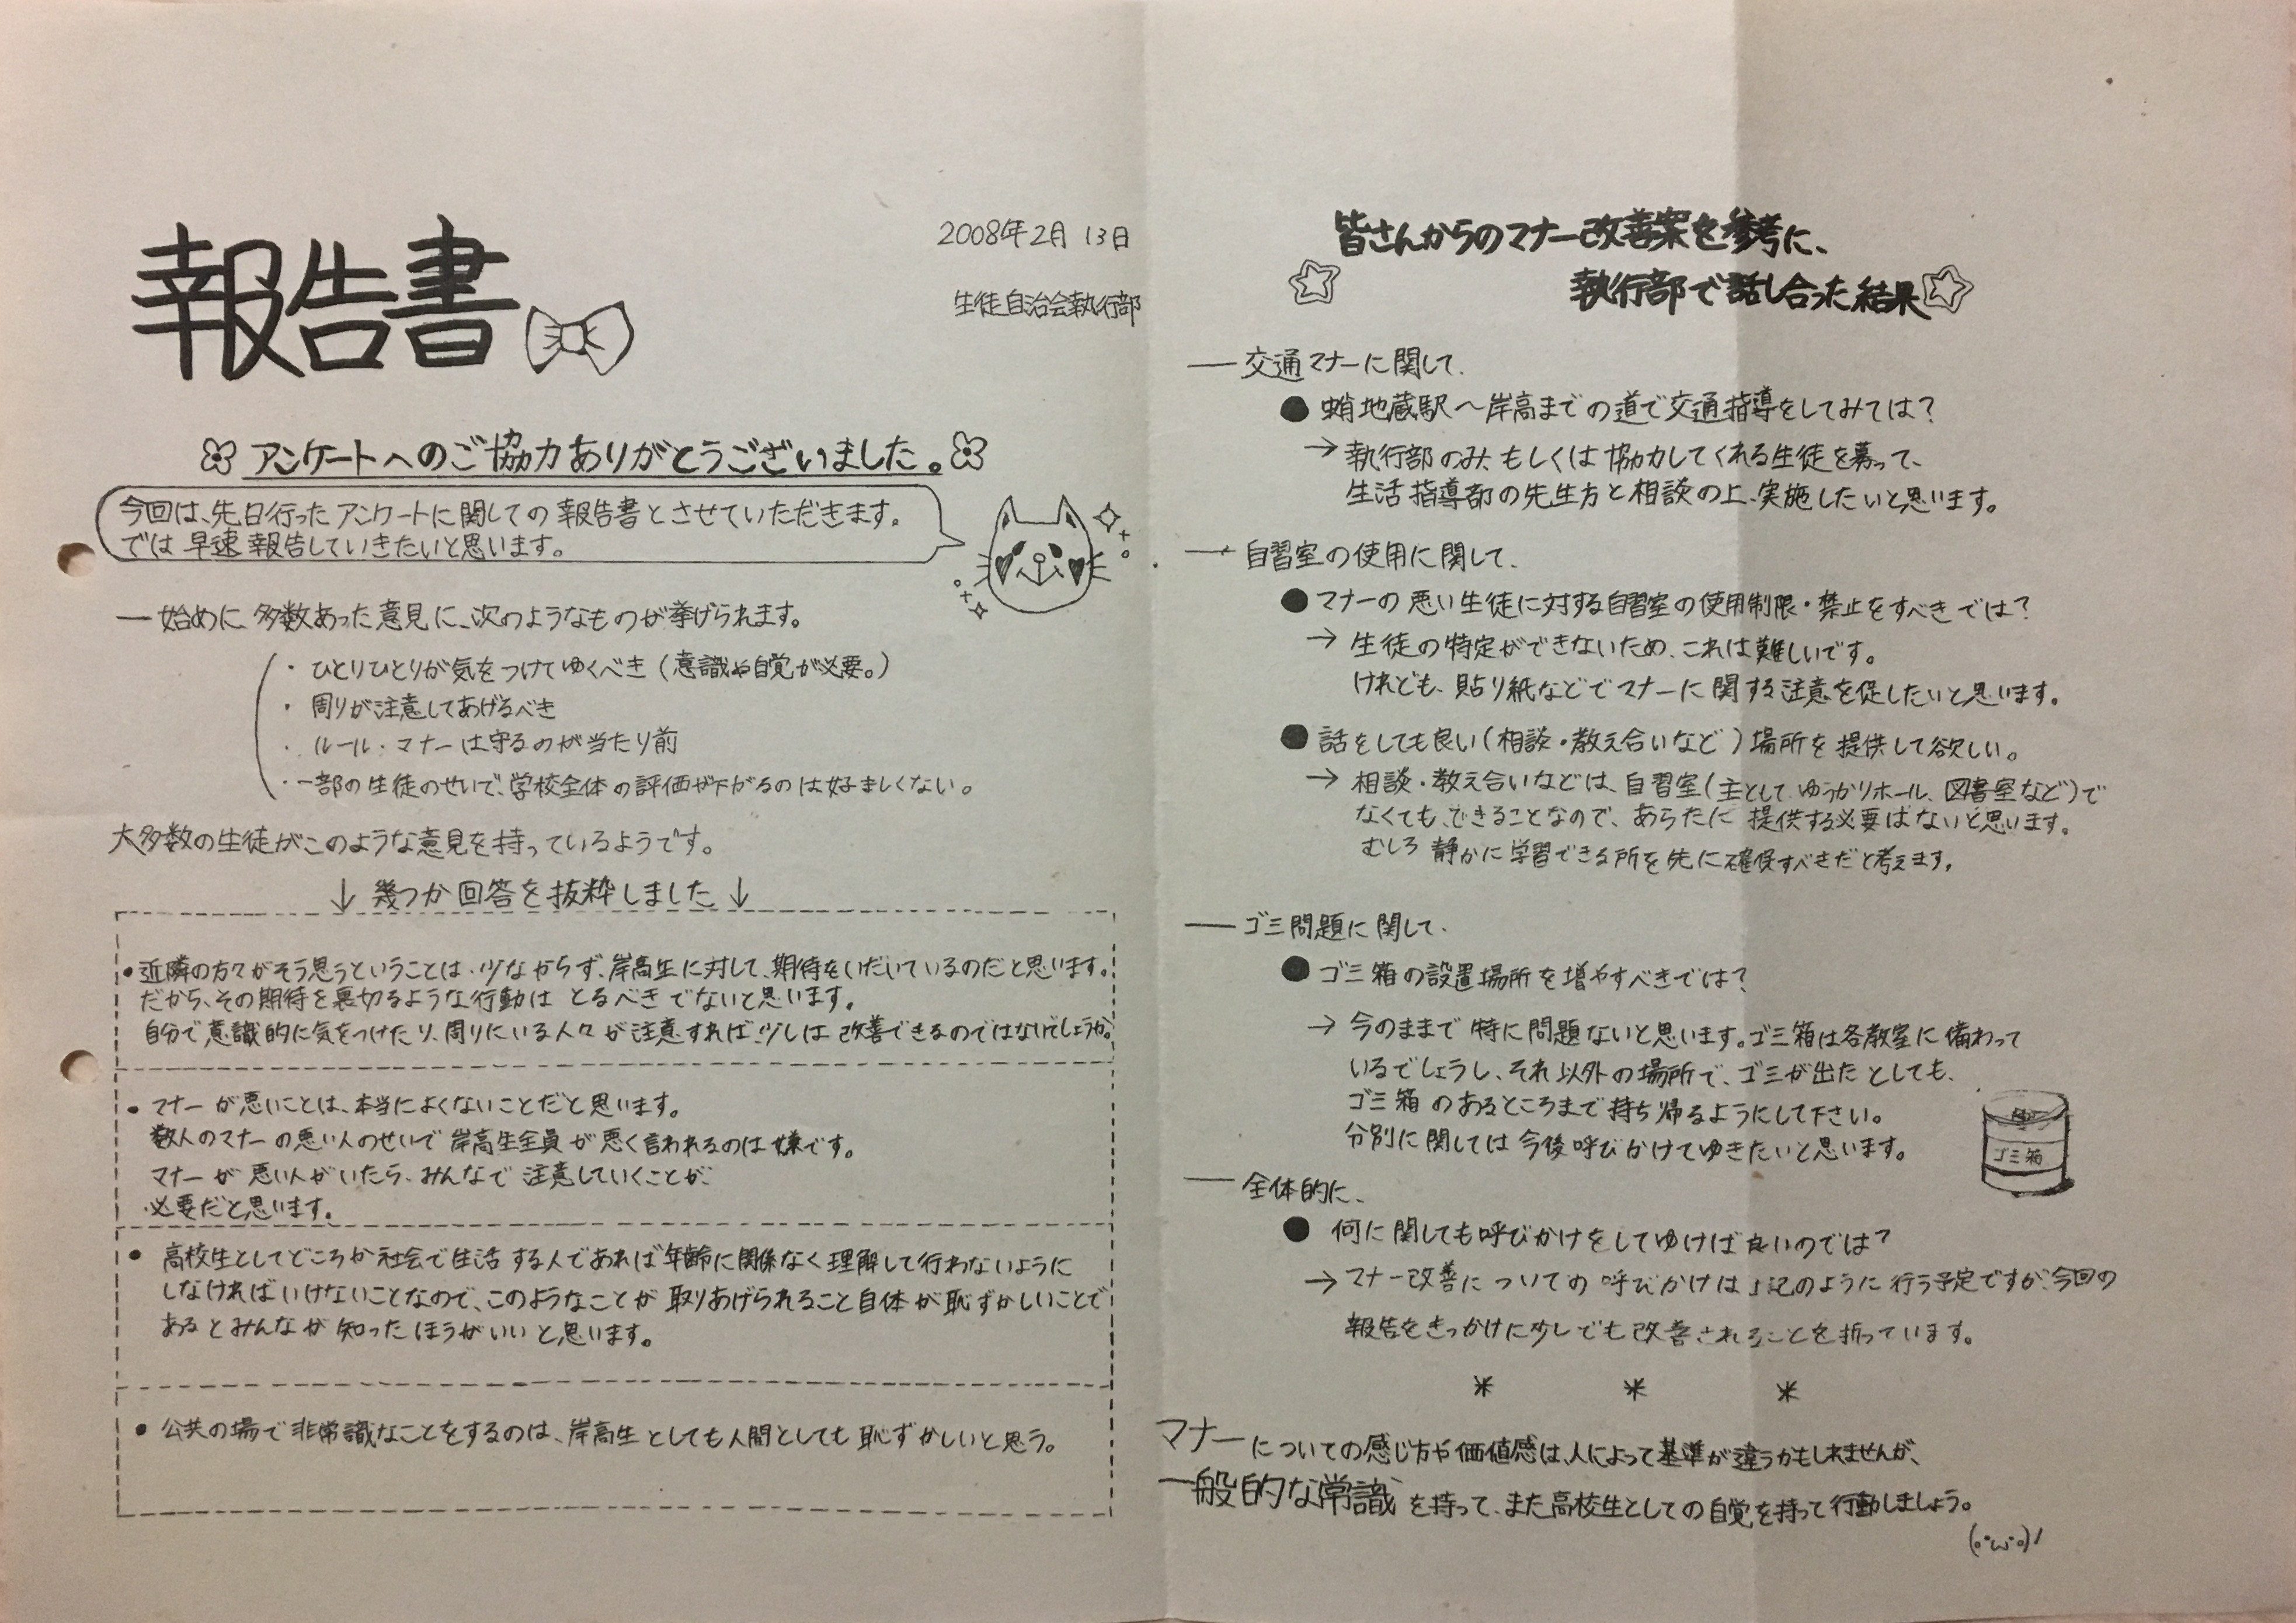 報告書
2008年2月13日
生徒自治会執行部
アンケートへのご協力ありがとうございました。
今回は、先日行ったアンケートに関しての報告書とさせていただきます。
では早速報告していきたいと思います。
― 始めに、多数あった意見に、次のようなものが挙げられます。
・ひとりひとりが気をつけてゆくべき(意識や自覚が必要。)
・周りが注意してあげるべき
・ルール・マナーは守るのが当たり前
・一部の生徒のせいで、学校全体の評価が下がるのは好ましくない。
大多数の生徒がこのような意見を持っているようです。
↓ 幾つか回答を抜粋しました ↓
●近隣の方々がそう思うということは、少なからず、岸高生に対して、期待をいだいているのだと思います。
だから、その期待を裏切るような行動はとるべきでないと思います。
自分で意識的に気をつけたり、周りにいる人々が注意すれば、少しは改善できるのではないでしょうか。
●マナーが悪いことは、本当によくないことだと思います。
数人のマナーの悪い人のせいで岸高生全員が悪く言われるのは嫌です。
マナーが悪い人がいたら、みんなで注意していくことが、
必要だと思います。
●高校生としてどころか社会で生活する人であれば年齢に関係なく理解して行わないように
しなければいけないことなので、このようなことが取りあげられること自体が恥ずかしいことで
あるとみんなが知ったほうがいいと思います。
●公共の場で非常識なことをするのは、岸高生としても人間としても恥ずかしいと思う。
皆さんからのマナー改善案を参考に、
執行部で話し合った結果
― 交通マナーに関して、
●蛸地蔵駅〜岸高までの道で交通指導をしてみては?
→執行部のみ、もしくは協力してくれる生徒を募って、
生活指導部の先生方と相談の上、実施したいと思います。
― 自習室の使用に関して、
●マナーの悪い生徒に対する自習室の使用制限・禁止をすべきでは?
→生徒の特定ができないため、これは難しいです。
けれども、貼り紙などでマナーに関する注意を促したいと思います。
●話をしても良い(相談・教え合いなど)場所を提供して欲しい。
→相談・教え合いなどは、自習室(主として、ゆうかりホール、図書室など)で
なくても、できることなので、あらたに提供する必要はないと思います。
むしろ静かに学習できる所を先に確保すべきだと考えます。
― ゴミ問題に関して、
●ゴミ箱の設置場所を増やすべきでは?
→今のままで特に問題ないと思います。ゴミ箱は各教室に備わって
いるでしょうし、それ以外の場所で、ゴミが出たとしても、
ゴミ箱のあるところまで持ち帰るようにして下さい。
分別に関しては今後呼びかけてゆきたいと思います。
ゴミ箱
― 全体的に、
●何に関しても呼びかけをしてゆけば良いのでは?
→マナー改善についての呼びかけは上記のように行う予定ですが、今回の
報告をきっかけに少しでも改善されることを祈っています。
* * *
マナーについての感じ方や価値感は、人によって基準が違うかもしれませんが、
一般的な常識を持って、また高校生としての自覚を持って行動しましょう。
(｡･ω･｡)ﾉ